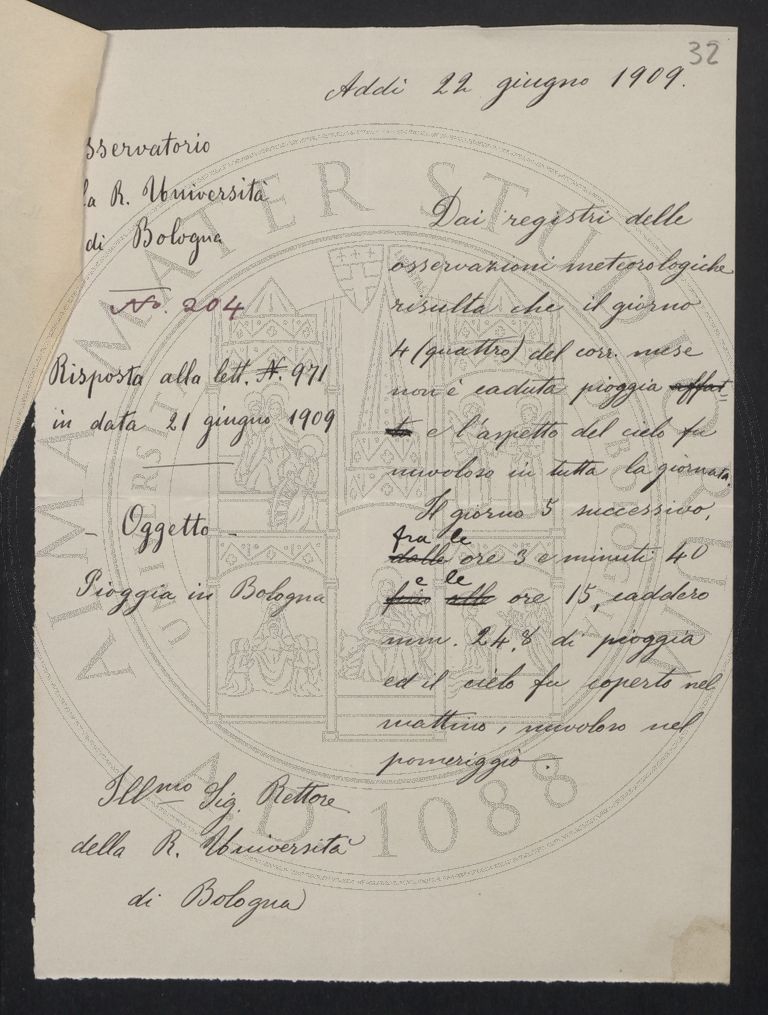 32
Addì 22 giugno 1909.
sservatorio
la R. Università
di Bologna
No. 204
Risposta alla lett. N. 971
in data 21 giugno 1909
- Oggetto -
Pioggia in Bologna
Dai registri delle
osservazioni meteorologiche
risulta che il giorno
4 (quattro) del corr. mese
non è caduta pioggia affat
to e l'aspetto del cielo fu
nuvoloso in tutta la giornata.
Il giorno 5 successivo,
fra le
dalle ore 3 e minuti 40
e le
fino alle ore 15, caddero
mm. 24,8 di pioggia
ed il cielo fu coperto nel
mattino, nuvoloso nel
pomeriggio.
Illmo Sig. Rettore
della R. Università
di Bologna
ALMA MATER STUDIORUM
A.D. 1088